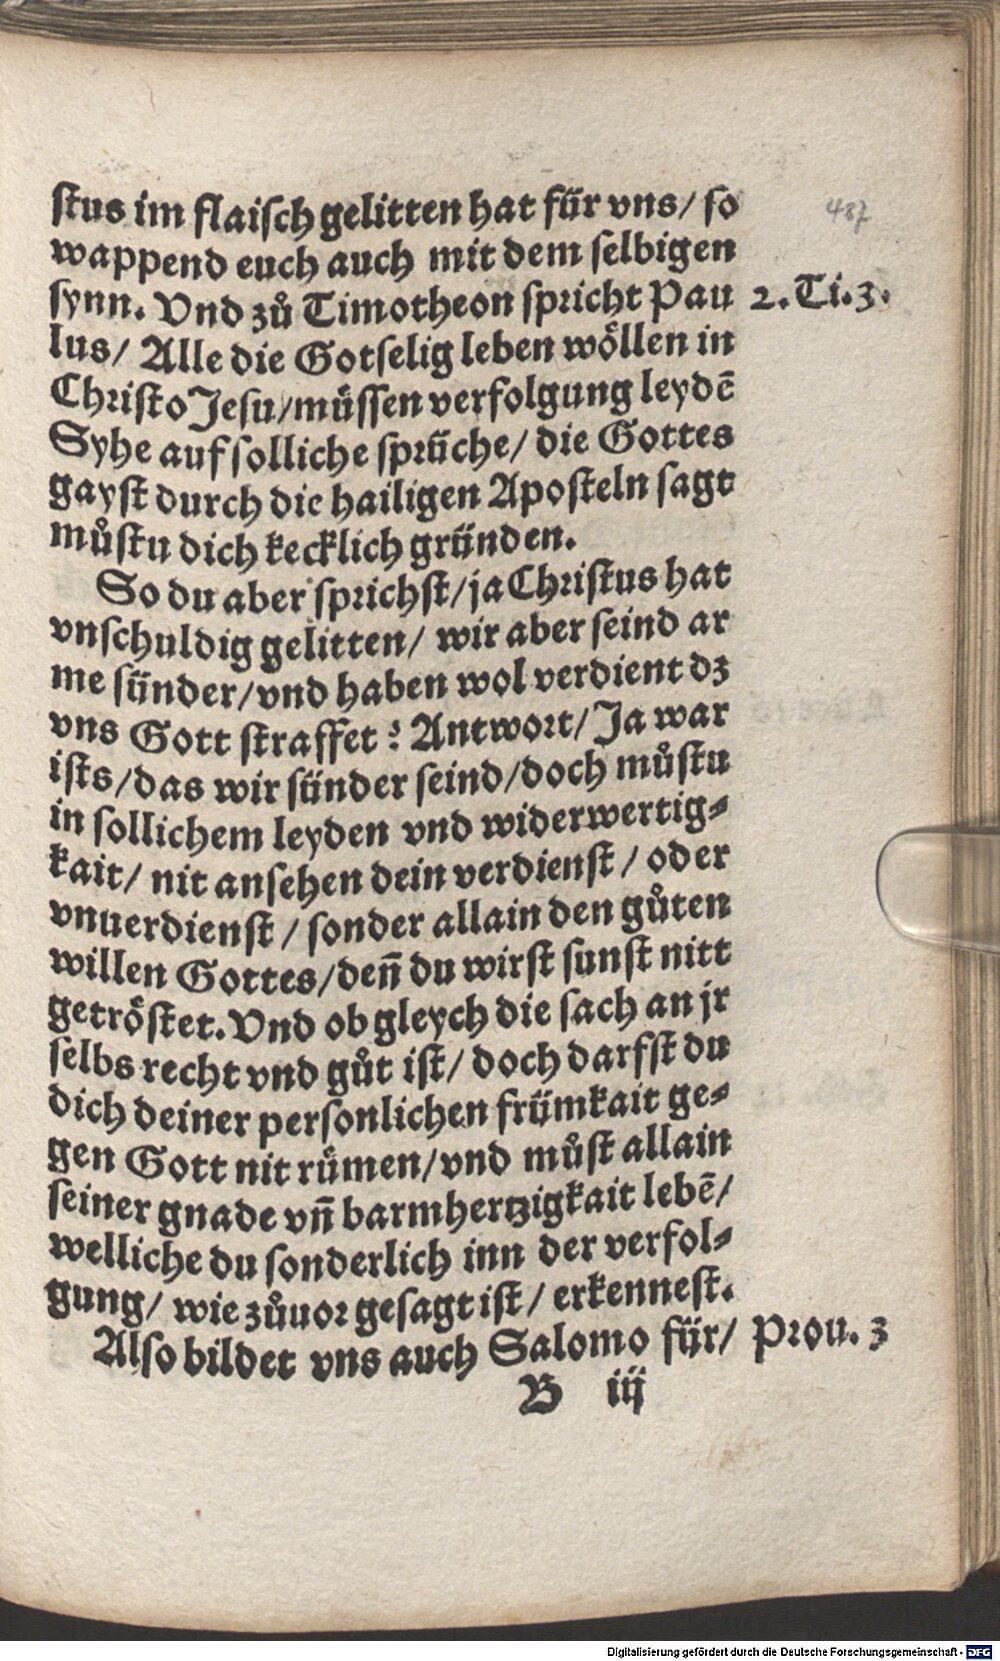 stus im flaisch gelitten hat für vns/ so
487
wappend euch auch mit dem selbigen
synn. Vnd zů Timotheon spricht Pau 2. Ti. 3.
lus/ Alle die Gotselig leben wöllen in
Christo Jesu/ müssen verfolgung leydē
Syhe auf solliche sprüche/ die Gottes
gayst durch die hailigen Aposteln sagt
můstu dich kecklich gründen.
So du aber sprichst/ ja Christus hat
vnschuldig gelitten/ wir aber seind ar
me sünder/ vnd haben wol verdient dz
vns Gott straffet? Antwort/ Ja war
ists/ das wir sünder seind/ doch můstu
in sollichem leyden vnd widerwertig⸗
kait/ nit ansehen dein verdienst/ oder
vnuerdienst/ sonder allain den gůten
willen Gottes/ deñ du wirst sunst nitt
getröstet. Vnd ob gleych die sach an jr
selbs recht vnd gůt ist/ doch darfst du
dich deiner personlichen frümkait ge⸗
gen Gott nit rümen/ vnd můst allain
seiner gnade vñ barmhertzigkait lebē/
welliche du sonderlich inn der verfol⸗
gung/ wie zůuor gesagt ist/ erkennest.
Also bildet vns auch Salomo für/ Prou. 3
B iij
Digitalisierung gefördert durch die Deutsche Forschungsgemeinschaft - DFG